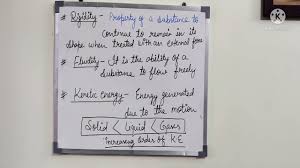 # Rigidity - Property of a substance to
continue to remain in its
shape when treated with an external force
# Fluidity - It is the ability of a
substance to flow freely
# Kinetic energy - Energy generated
due to the motion
Solid < Liquid < Gases
Increasing order of K.E